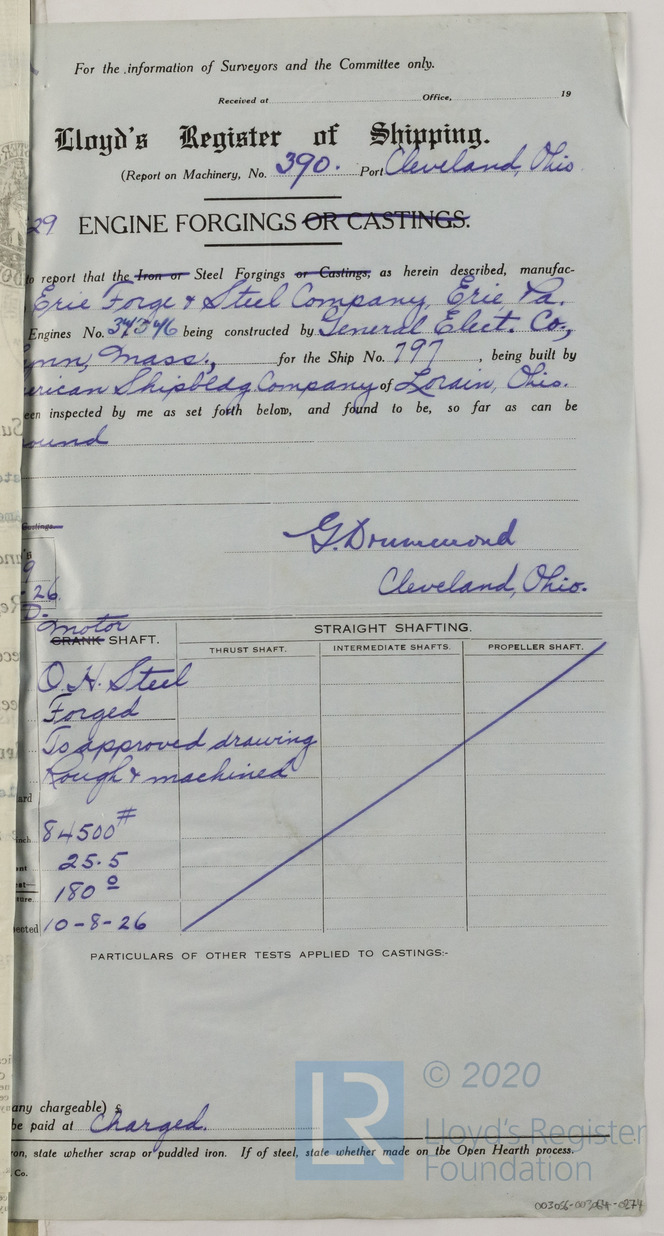 For the information of Surveyors and the Committee only.
Received at Office, 19
Lloyd's Register of Shipping.
(Report on Machinery, No. 390. Port Cleveland, Ohio
29 ENGINE FORGINGS OR CASTINGS.
to report that the Iron or Steel Forgings or Castings, as herein described, manufac-
Erie Forge & Steel Company, Erie Pa.
Engines No. being constructed by General Elect. Co.,
ynn, Mass., for the Ship No. 797, being built by
erican Shipbldg. Company of Lorain, Ohio.
een inspected by me as set forth below, and found to be, so far as can be
ound
Castings.
G. Drummond
Cleveland, Ohio.
26
D.
motor
CRANK SHAFT. STRAIGHT SHAFTING.
THRUST SHAFT. INTERMEDIATE SHAFTS. PROPELLER SHAFT.
O.H. Steel
Forged
To approved drawing
Rough & machined
ard
inch 84500#
ent 25.5
180°
ture
ected 10-8-26
PARTICULARS OF OTHER TESTS APPLIED TO CASTINGS:-
any chargeable) £
be paid at Charged.
ron, state whether scrap or puddled iron. If of steel, state whether made on the Open Hearth process.
Co.
© 2020
LR
Lloyd's Register
Foundation